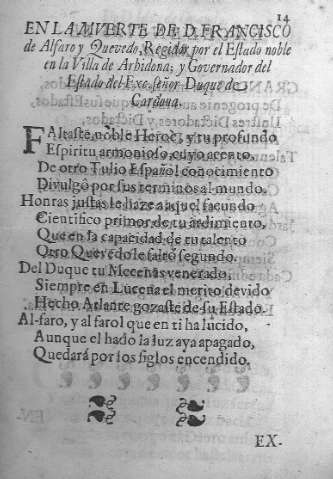 14
EN LA MVERTE DE D. FRANCISCO
de Alfaro y Quevedo, Regidor por el Estado noble
en la Villa de Arbidona; y Governador del
Estado del Exc. señor Duque de
Cardona.
FAltaste, noble Heroe, y tu profundo
Espiritu armonioso, cuyo acento
De otro Tulio Español conocimiento
Divulgò por sus terminos al mundo.
Honras justas le haze a aquel facundo
Cientifico primor de tu
Que en la capacidad de tu talento
Otro Quevedo le faltò segundo.
Del Duque tu Mecenas venerado,
Siempre en Lucena el merito devido
Hecho Atlante gozaste de su Estado.
Al-faro, y al farol que en ti ha lucido,
Aunque el hado la luz aya apagado,
Quedarà por los siglos encendido.
EX-